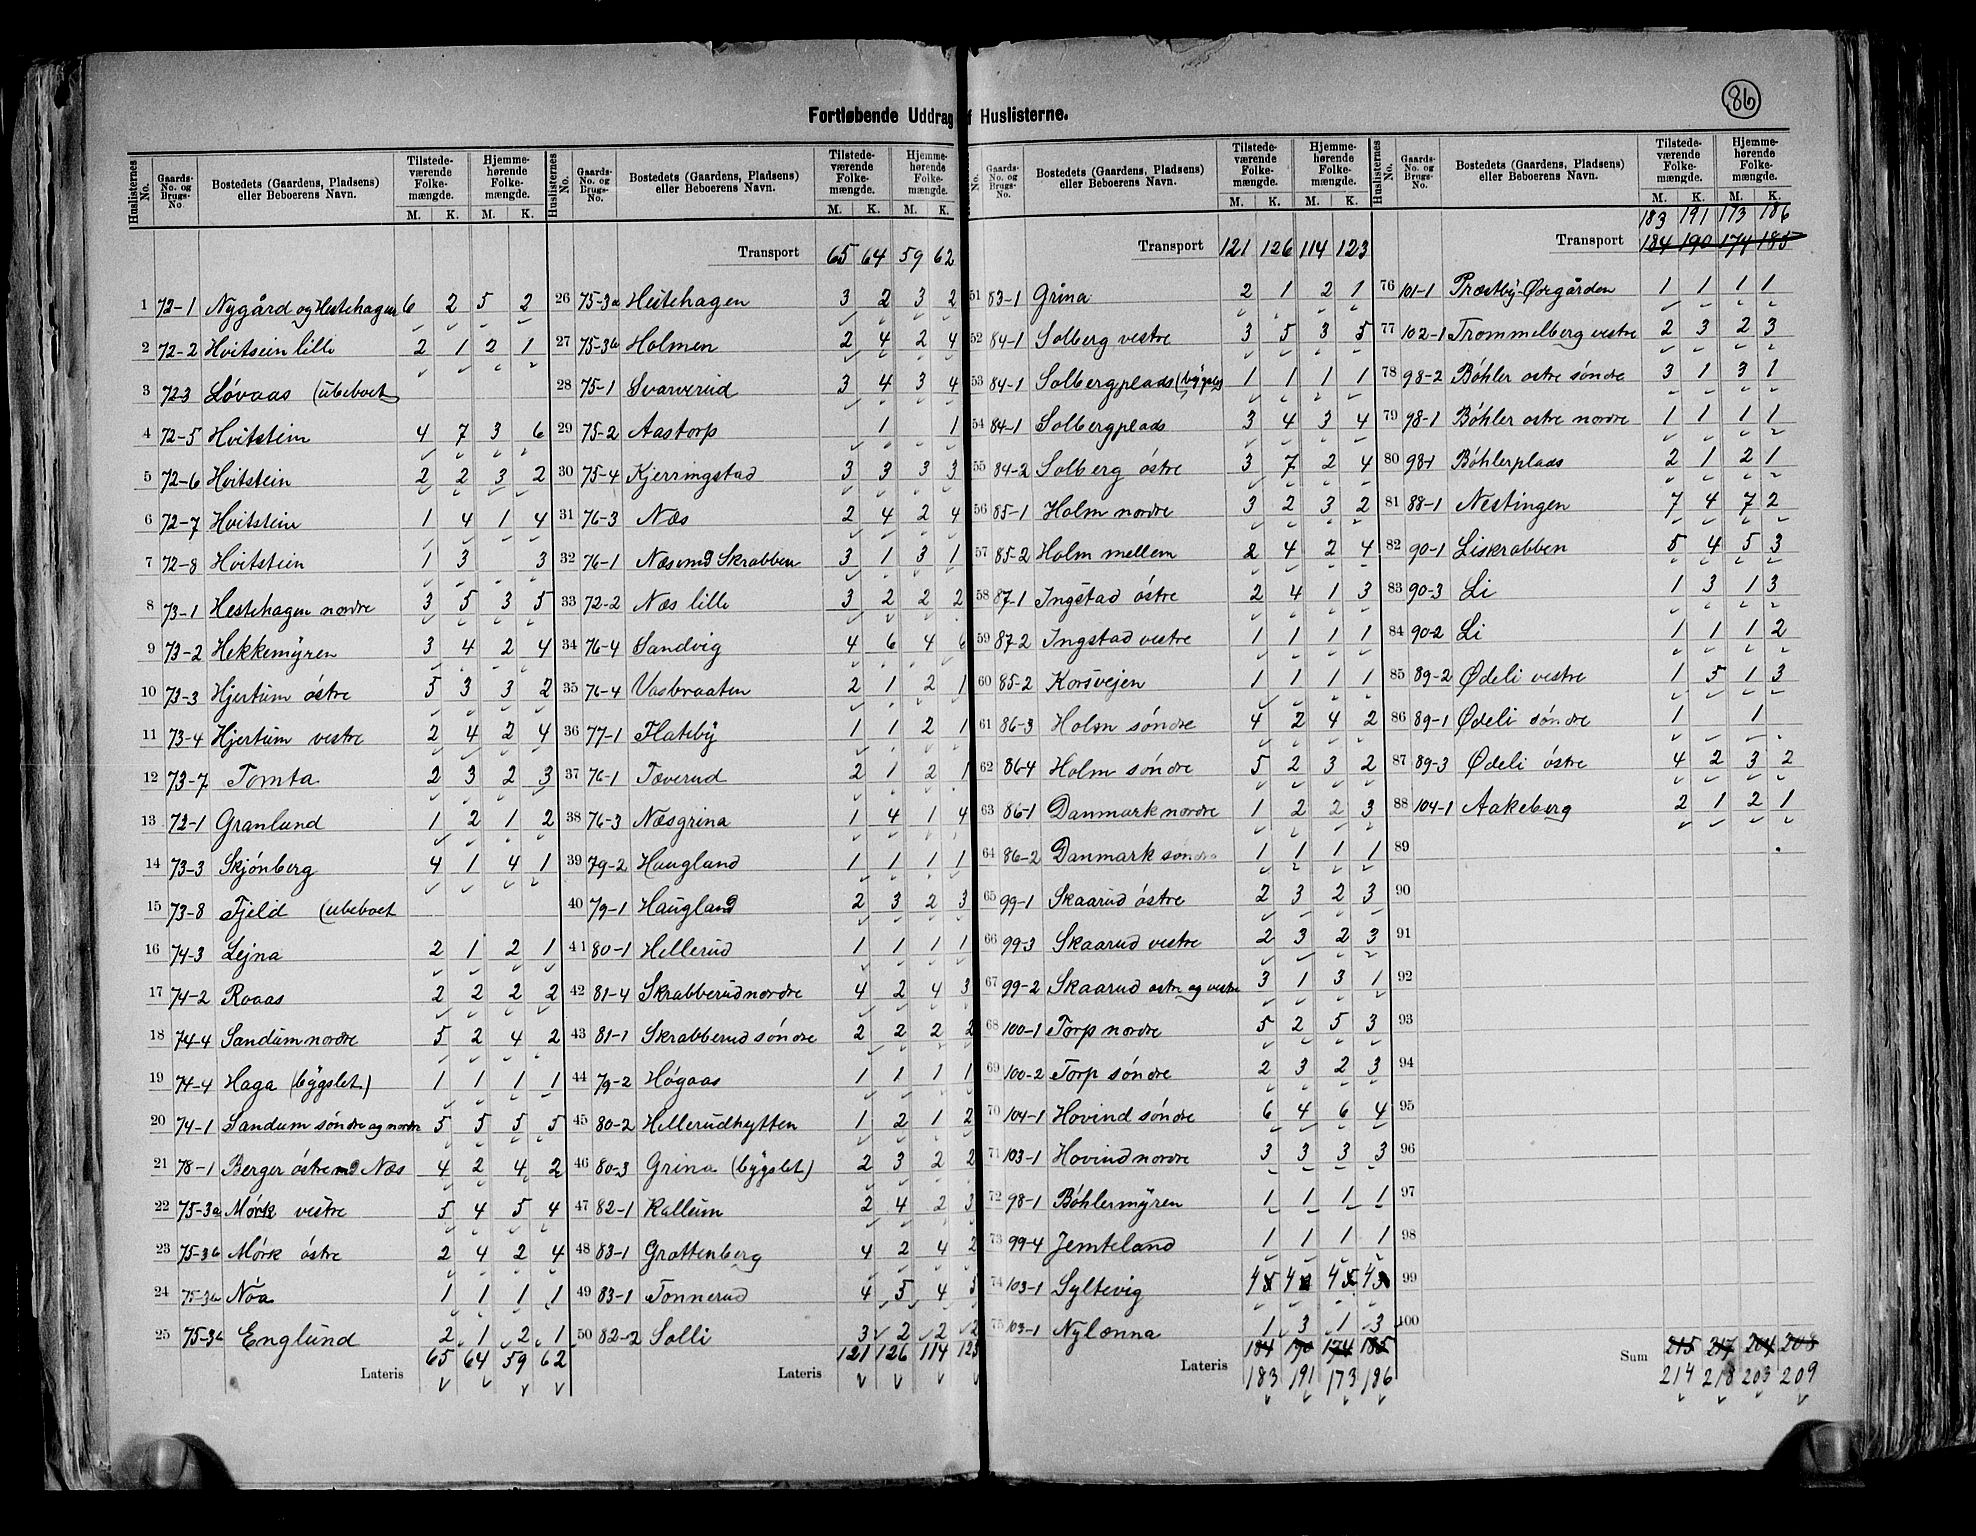 86
Fortløbende Uddrag af Huslisterne.
Huslisternes No. Gaards-No. og Brugs-No. Bostedets (Gaardens, Pladsens) eller Beboerens Navn. Tilstedeværende Folkemængde. M. K. Hjemmehørende Folkemængde. M. K.
1 72-1 Nygård og Hestehagen 6 2 5 2
2 72-2 Hvitsein lille 2 1 2 1
3 72-3 Løvaas (ubeboet
4 72-5 Hvitstein 4 7 3 6
5 72-6 Hvitstein 2 2 3 2
6 72-7 Hvitstein 1 4 1 4
7 72-8 Hvitstein 1 3 3
8 73-1 Hestehagen nordre 3 5 3 5
9 73-2 Hekkemÿren 3 4 2 4
10 73-3 Hjertum östre 5 3 3 2
11 73-4 Hjertum vestre 2 4 2 4
12 73-7 Tomta 2 3 2 3
13 72-1 Granlund 1 2 1 2
14 73-3 Skjönberg 4 1 4 1
15 73-8 Fjeld (ubeboet
16 74-3 Lejna 2 1 2 1
17 74-2 Roaas 2 2 2 2
18 74-4 Sandum nordre 5 2 4 2
19 74-4 Haga (bÿgslet) 1 1 1 1
20 74-1 Sandum söndre og nordre 5 5 5 5
21 78-1 Berger östre md Næs 4 2 4 2
22 75-3a Mörk vestre 5 4 5 4
23 75-3b Mörk östre 2 4 2 4
24 75-3b Nöa 1 1 1 1
25 75-3b Englund 2 1 2 1
Lateris 65 64 59 62
Huslisternes No. Gaards-No. og Brugs-No. Bostedets (Gaardens, Pladsens) eller Beboerens Navn. Tilstedeværende Folkemængde. M. K. Hjemmehørende Folkemængde. M. K.
Transport 65 64 59 62
26 75-3a Hestehagen 3 2 3 2
27 75-3b Holmen 2 4 2 4
28 75-1 Svarverud 3 4 3 4
29 75-2 Aastorp 1 1
30 75-4 Kjerringstad 3 3 3 3
31 76-3 Næs 2 4 2 4
32 76-1 Næs md Skrabben 3 1 3 1
33 72-2 Næs lille 3 2 2 2
34 76-4 Sandvig 4 6 4 6
35 76-4 Vasbraaten 2 1 2 1
36 77-1 Flatebÿ 1 1 2 1
37 76-1 Tæverud 2 1 2 1
38 76-3 Næsgrina 1 4 1 4
39 79-2 Haugland 1 1 1 1
40 79-1 Haugland 2 3 2 3
41 80-1 Hellerud 1 1 1 1
42 81-4 Skrabberud nordre 4 2 4 3
43 81-1 Skrabberud söndre 2 2 2 2
44 79-2 Högaas 1 1 1 1
45 80-2 Hellerudhytten 1 2 1 2
46 80-3 Grina (bÿgslet) 2 3 2 2
47 82-1 Kallum 2 4 2 3
48 83-1 Grattenberg 4 2 4 2
49 83-1 Tonnerud 4 5 4 5
50 82-2 Solli 3 2 2 2
Lateris 121 126 114 123
No. Gaards-No. og Brugs-No. Bostedets (Gaardens, Pladsens) eller Beboerens Navn. Tilstedeværende Folkemængde. M. K. Hjemmehørende Folkemængde. M. K.
Transport 121 126 114 123
51 83-1 Grina 2 1 2 1
52 84-1 Solberg vestre 3 5 3 5
53 84-1 Solbergplads 1 1 1 1
54 84-1 Solbergplads 3 4 3 4
55 84-2 Solberg östre 3 7 2 4
56 85-1 Holm nordre 3 2 3 2
57 85-2 Holm mellem 2 4 2 4
58 87-1 Ingstad östre 2 4 1 3
59 87-2 Ingstad vestre 1 1 1 1
60 85-2 Korsvejen 1 1 1 1
61 86-3 Holm söndre 4 2 4 2
62 86-4 Holm söndre 5 2 3 2
63 86-1 Danmark nordre 1 2 2 3
64 86-2 Danmark söndre 1 1 1 1
65 99-1 Skaarud östre 2 3 2 3
66 99-3 Skaarud vestre 2 3 2 3
67 99-2 Skaarud östre og vestre 3 1 3 1
68 100-1 Torp nordre 5 2 5 3
69 100-2 Torp söndre 2 3 2 3
70 104-1 Hovind söndre 6 4 6 4
71 103-1 Hovind nordre 3 3 3 3
72 98-1 Böhlermÿren 1 1 1 1
73 99-4 Jemteland 1 1 1 1
74 103-1 Syltevig 4 4 4 4
75 103-1 Nylænna 1 3 1 3
184 190 174 185
Lateris 183 191 173 186
Huslisternes No. Gaards-No. og Brugs-No. Bostedets (Gaardens, Pladsens) eller Beboerens Navn. Tilstedeværende Folkemængde. M. K. Hjemmehørende Folkemængde. M. K.
183 191 173 186
Transport 184 190 174 185
76 101-1 Præstbÿ-Örgården 1 1 1 1
77 102-1 Trommelberg vestre 2 3 2 3
78 98-2 Böhler östre söndre 3 1 3 1
79 98-1 Böhler östre nordre 1 1 1 1
80 98-1 Böhlerplads 2 1 2 1
81 88-1 Nestingen 7 4 7 2
82 90-1 Liskrabben 5 4 5 3
83 90-3 Li 1 3 1 3
84 90-2 Li 1 1 1 2
85 89-2 Ødeli vestre 1 5 1 3
86 89-1 Ødeli söndre 1 1
87 89-3 Ødeli östre 4 2 3 2
88 104-1 Aakeberg 2 1 2 1
89
90
91
92
93
94
95
96
97
98
99
100
Sum 215 217 204 208
214 218 203 209